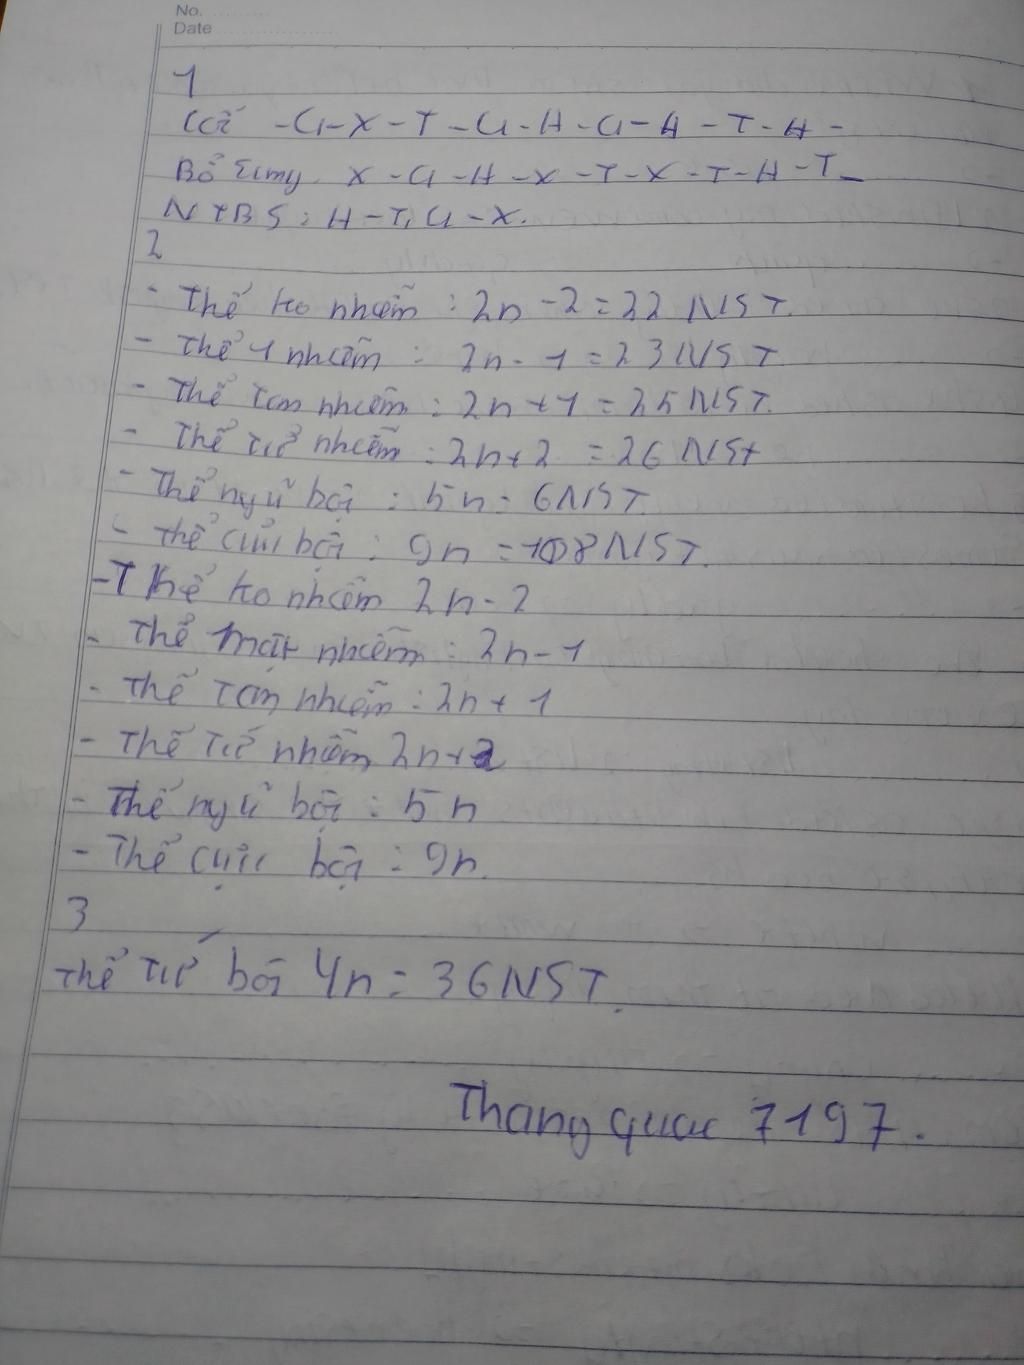 No.
Date
1
Gốc -G-X-T-G-A-G-A-T-A-
Bổ sung X-G-A-X-T-X-T-A-T-
NTBS: A-T, G-X.
2
- Thể ko nhiễm: 2n-2=22 NST.
- Thể 1 nhiễm: 2n-1=23NST
- Thể Tam nhiễm: 2n+1=25NST.
- Thể Tứ nhiễm: 2n+2=26 NST
- Thể ngũ bội: 5n=6NST.
- Thể cửu bội: 9n=108NST.
-Thể ko nhiễm 2n-2
- Thể Một nhiễm: 2n-1
- Thể Tam nhiễm: 2n+1
- Thể Tứ nhiễm 2n+2
- Thể ngũ bội: 5n
- Thể cực bội: 9n.
3
Thể Tứ bội 4n=36NST.
Thang quoc 7197.